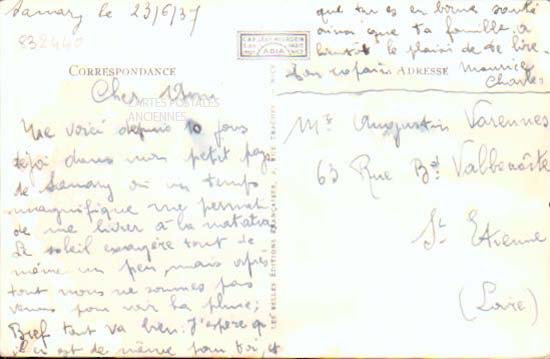 Sanary le 23/6/37
832440
CORRESPONDANCE
Cher Ami
CARTES POSTALES
ANCIENNES
Me voici depuis 10 jours
déjà dans mon petit pays
de Sanary où un temps
magnifique me permet
de me livrer à la natation
Le soleil exagère tout de
même un peu, mais après
tout nous ne sommes pas
venus pour voir la pluie;
Bref tout va bien. J'espère qu'
il en est de même pour toi, et
que tu es en bonne santé
ainsi que ta famille. à
bientôt le plaisir de te lire.
Ton copain Maurice
Charles
ADRESSE
Mr Augustin Varennes
63 Rue Bd Valbenoîte
St Etienne
(Loire)
ADIA
LES BELLES ÉDITIONS FRANÇAISES,